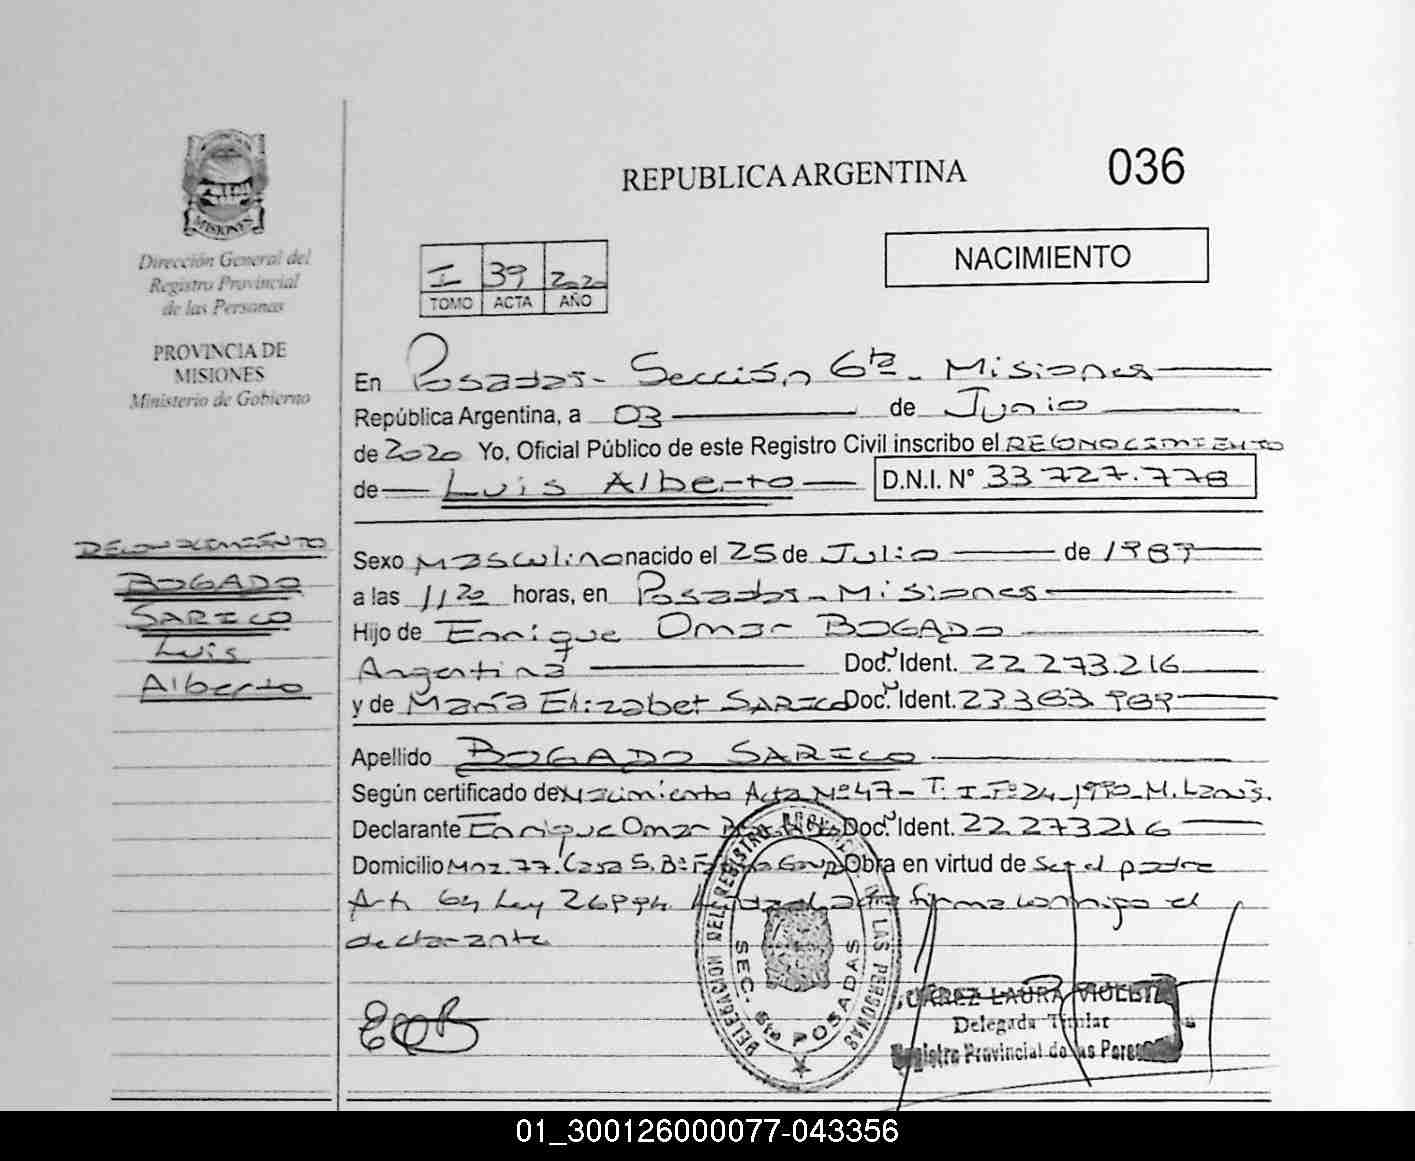 MISIONES
Dirección General del
Registro Provincial
de las Personas
PROVINCIA DE
MISIONES
Ministerio de Gobierno
RECONOCIMIENTO
BOGADO
SARICO
Luis
Alberto
REPUBLICA ARGENTINA 036
NACIMIENTO
I 39 2020
TOMO ACTA AÑO
En Posadas - Sección 6ta - Misiones
República Argentina, a 03 de Junio
de 2020 Yo, Oficial Público de este Registro Civil inscribo el RECONOCIMIENTO
de Luis Alberto D.N.I. N° 33 727.778
Sexo Masculino nacido el 25 de Julio de 1989
a las 11,20 horas, en Posadas - Misiones
Hijo de Enrique Omar BOGADO
Argentina Doc. Ident. 22 273.216
y de María Elizabet SARICO Doc. Ident. 23 363 989
Apellido BOGADO SARICO
Según certificado de Nacimiento Acta Nº 47 - T. I Fº 24 - 1990 - M. Lanús.
Declarante Enrique Omar Doc. Ident. 22 273216
Domicilio Mnz. 77. Casa 5. Bº Obra en virtud de ser el padre
Art. 64 Ley 26994 firma conmigo el
declarante
DELEGACION DEL REGISTRO PROVINCIAL DE LAS PERSONAS
SEC. 6ta POSADAS
JUAREZ LAURA VIOLETA
Delegada Titular
Registro Provincial de las Personas
01_300126000077-043356